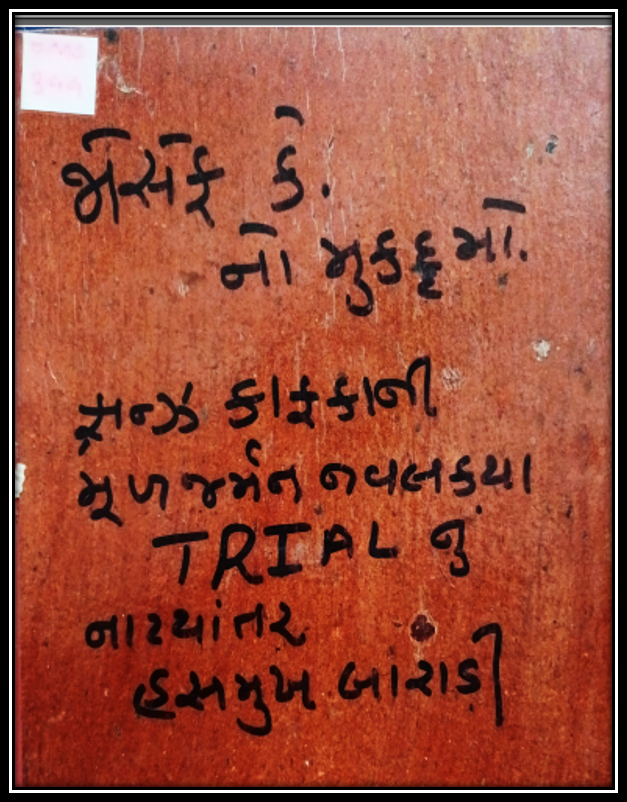 જોસેફ કે.
નો મુકદ્દમો.
ફ્રાન્ઝ કાફકાની
મૂળ જર્મન નવલકથા
TRIAL નું
નાટ્યાંતર
હસમુખ બારાડી